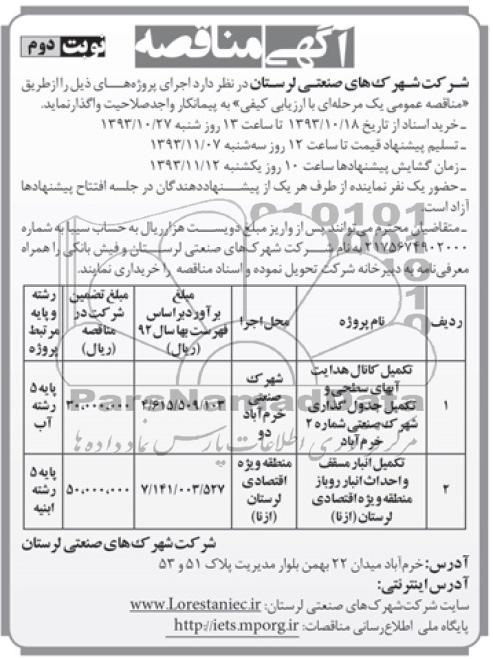 آگهی مناقصه
نوبت دوم
شرکت شهرک‌های صنعتی لرستان در نظر دارد اجرای پروژه‌های ذیل را از طریق
«مناقصه عمومی یک مرحله‌ای با ارزیابی کیفی» به پیمانکار واجد صلاحیت واگذار نماید.
ـ خرید اسناد از تاریخ ۱۳۹۳/۱۰/۱۸ تا ساعت ۱۳ روز شنبه ۱۳۹۳/۱۰/۲۷
ـ تسلیم پیشنهاد قیمت تا ساعت ۱۲ روز سه‌شنبه ۱۳۹۳/۱۱/۰۷
ـ زمان گشایش پیشنهادها ساعت ۱۰ روز یکشنبه ۱۳۹۳/۱۱/۱۲
ـ حضور یک نفر نماینده از طرف هر یک از پیشنهاددهندگان در جلسه افتتاح پیشنهادها
آزاد است.
ـ متقاضیان محترم می‌توانند پس از واریز مبلغ دویست هزار ریال به حساب سیبا به شماره
۲۱۷۵۶۷۴۹۰۲۰۰۰ به نام شرکت شهرک‌های صنعتی لرستان و فیش بانکی را همراه
معرفی‌نامه به دبیرخانه شرکت تحویل نموده و اسناد مناقصه را خریداری نمایند.
ردیف | نام پروژه | محل اجرا | مبلغ برآورد براساس فهرست بها سال ۹۲ (ریال) | مبلغ تضمین شرکت در مناقصه (ریال) | رشته و پایه مرتبط پروژه
۱ | تکمیل کانال هدایت آبهای سطحی و تکمیل جدول گذاری شهرک صنعتی شماره ۲ خرم‌آباد | شهرک صنعتی خرم‌آباد دو | ۲/۶۱۵/۵۰۹/۱۰۳ | ۳۰,۰۰۰,۰۰۰ | پایه ۵ رشته آب
۲ | تکمیل انبار مسقف و احداث انبار روباز منطقه ویژه اقتصادی لرستان (ازنا) | منطقه ویژه اقتصادی لرستان (ازنا) | ۷/۱۴۱/۰۰۳/۵۲۷ | ۵۰,۰۰۰,۰۰۰ | پایه ۵ رشته ابنیه
ParsNamadData
مرکز فرآوری اطلاعات پارس نماد داده‌ها
شرکت شهرک‌های صنعتی لرستان
آدرس: خرم‌آباد میدان ۲۲ بهمن بلوار مدیریت پلاک ۵۱ و ۵۳
آدرس اینترنتی:
سایت شرکت شهرک‌های صنعتی لرستان: www.Lorestaniec.ir
پایگاه ملی اطلاع‌رسانی مناقصات: http://iets.mporg.ir